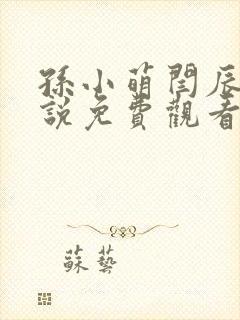 孫小萌閆辰
說免費觀看
蘇藝